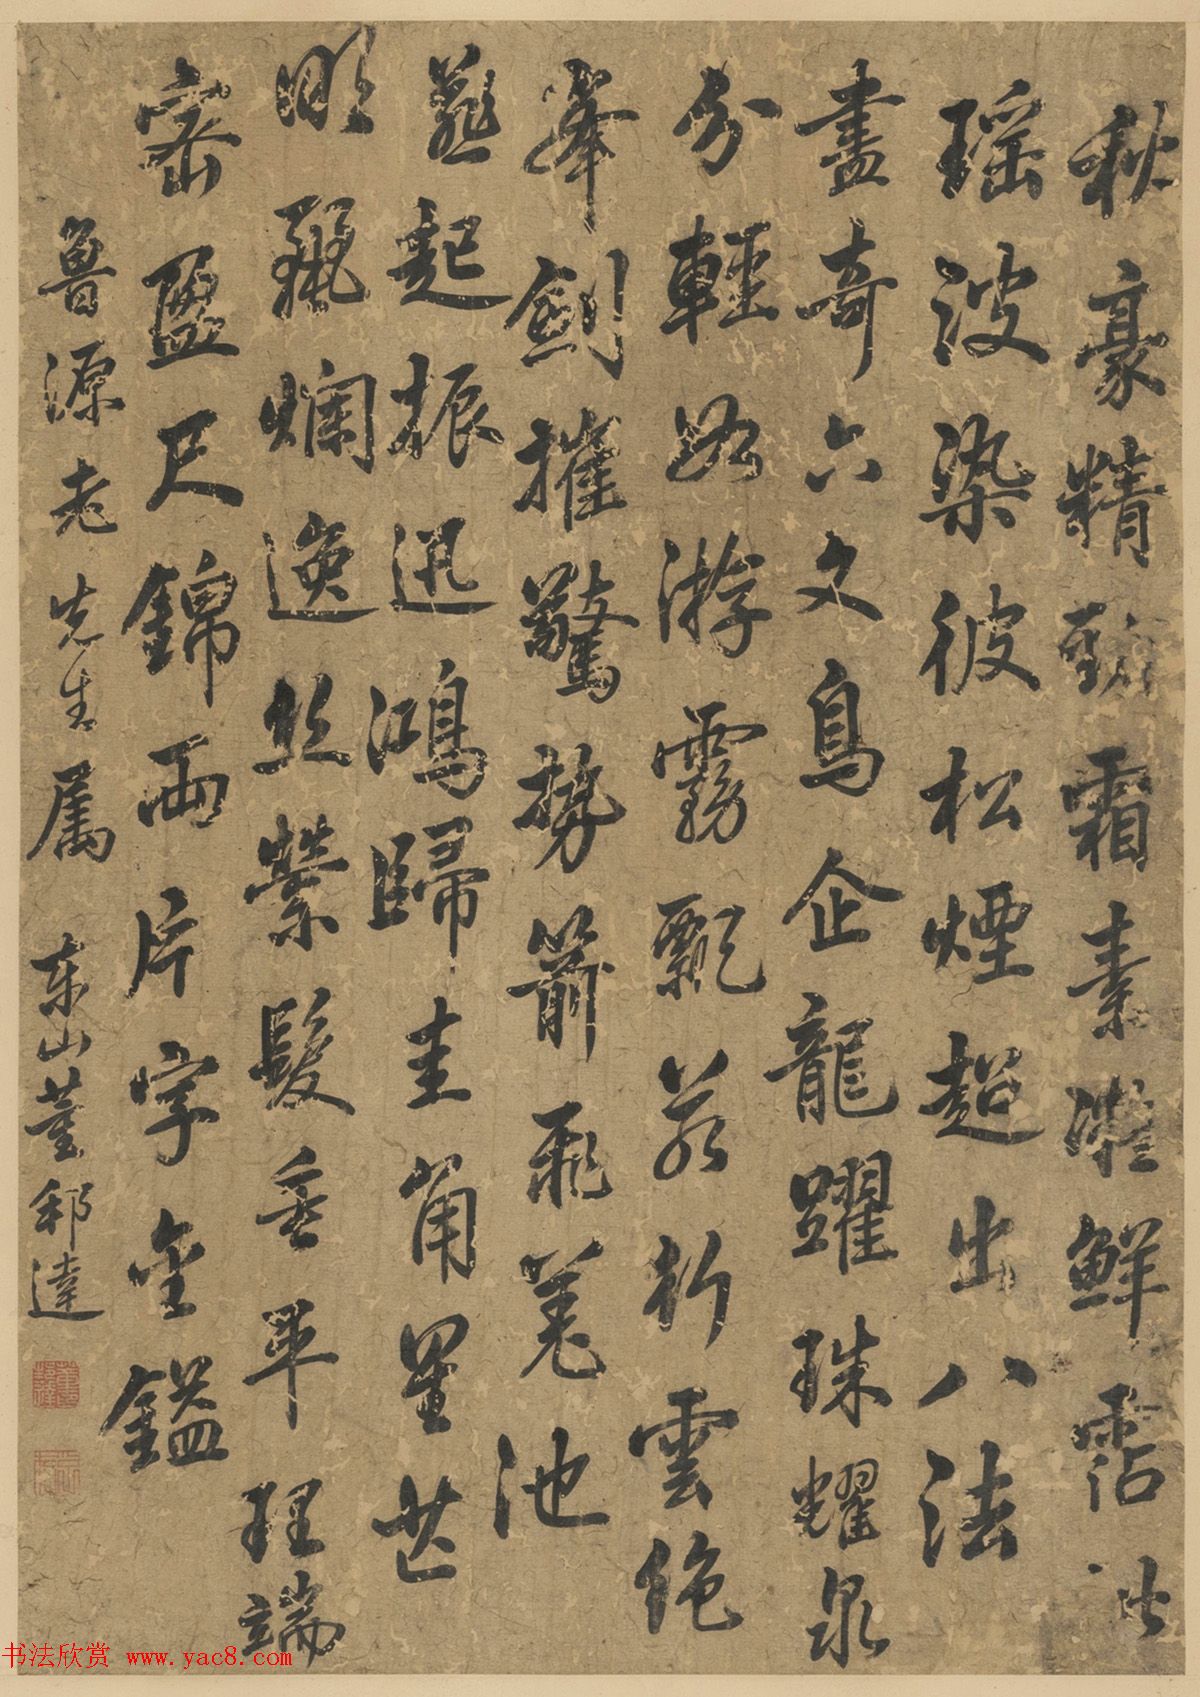 秋豪精勁霜素凝鮮霑此
瑶波染彼松煙超出八法
盡奇六文鳥企龍躍珠耀泉
分輕如游霧飄若行雲絶
峯劍摧驚勢箭飛差池
燕起振迅鴻歸圭角星芒
明麗爛逸絲縈髮垂平理端
密盈尺錦兩片字金鎰
魯源老先生属 東山董邦達
书法欣赏 www.yac8.com